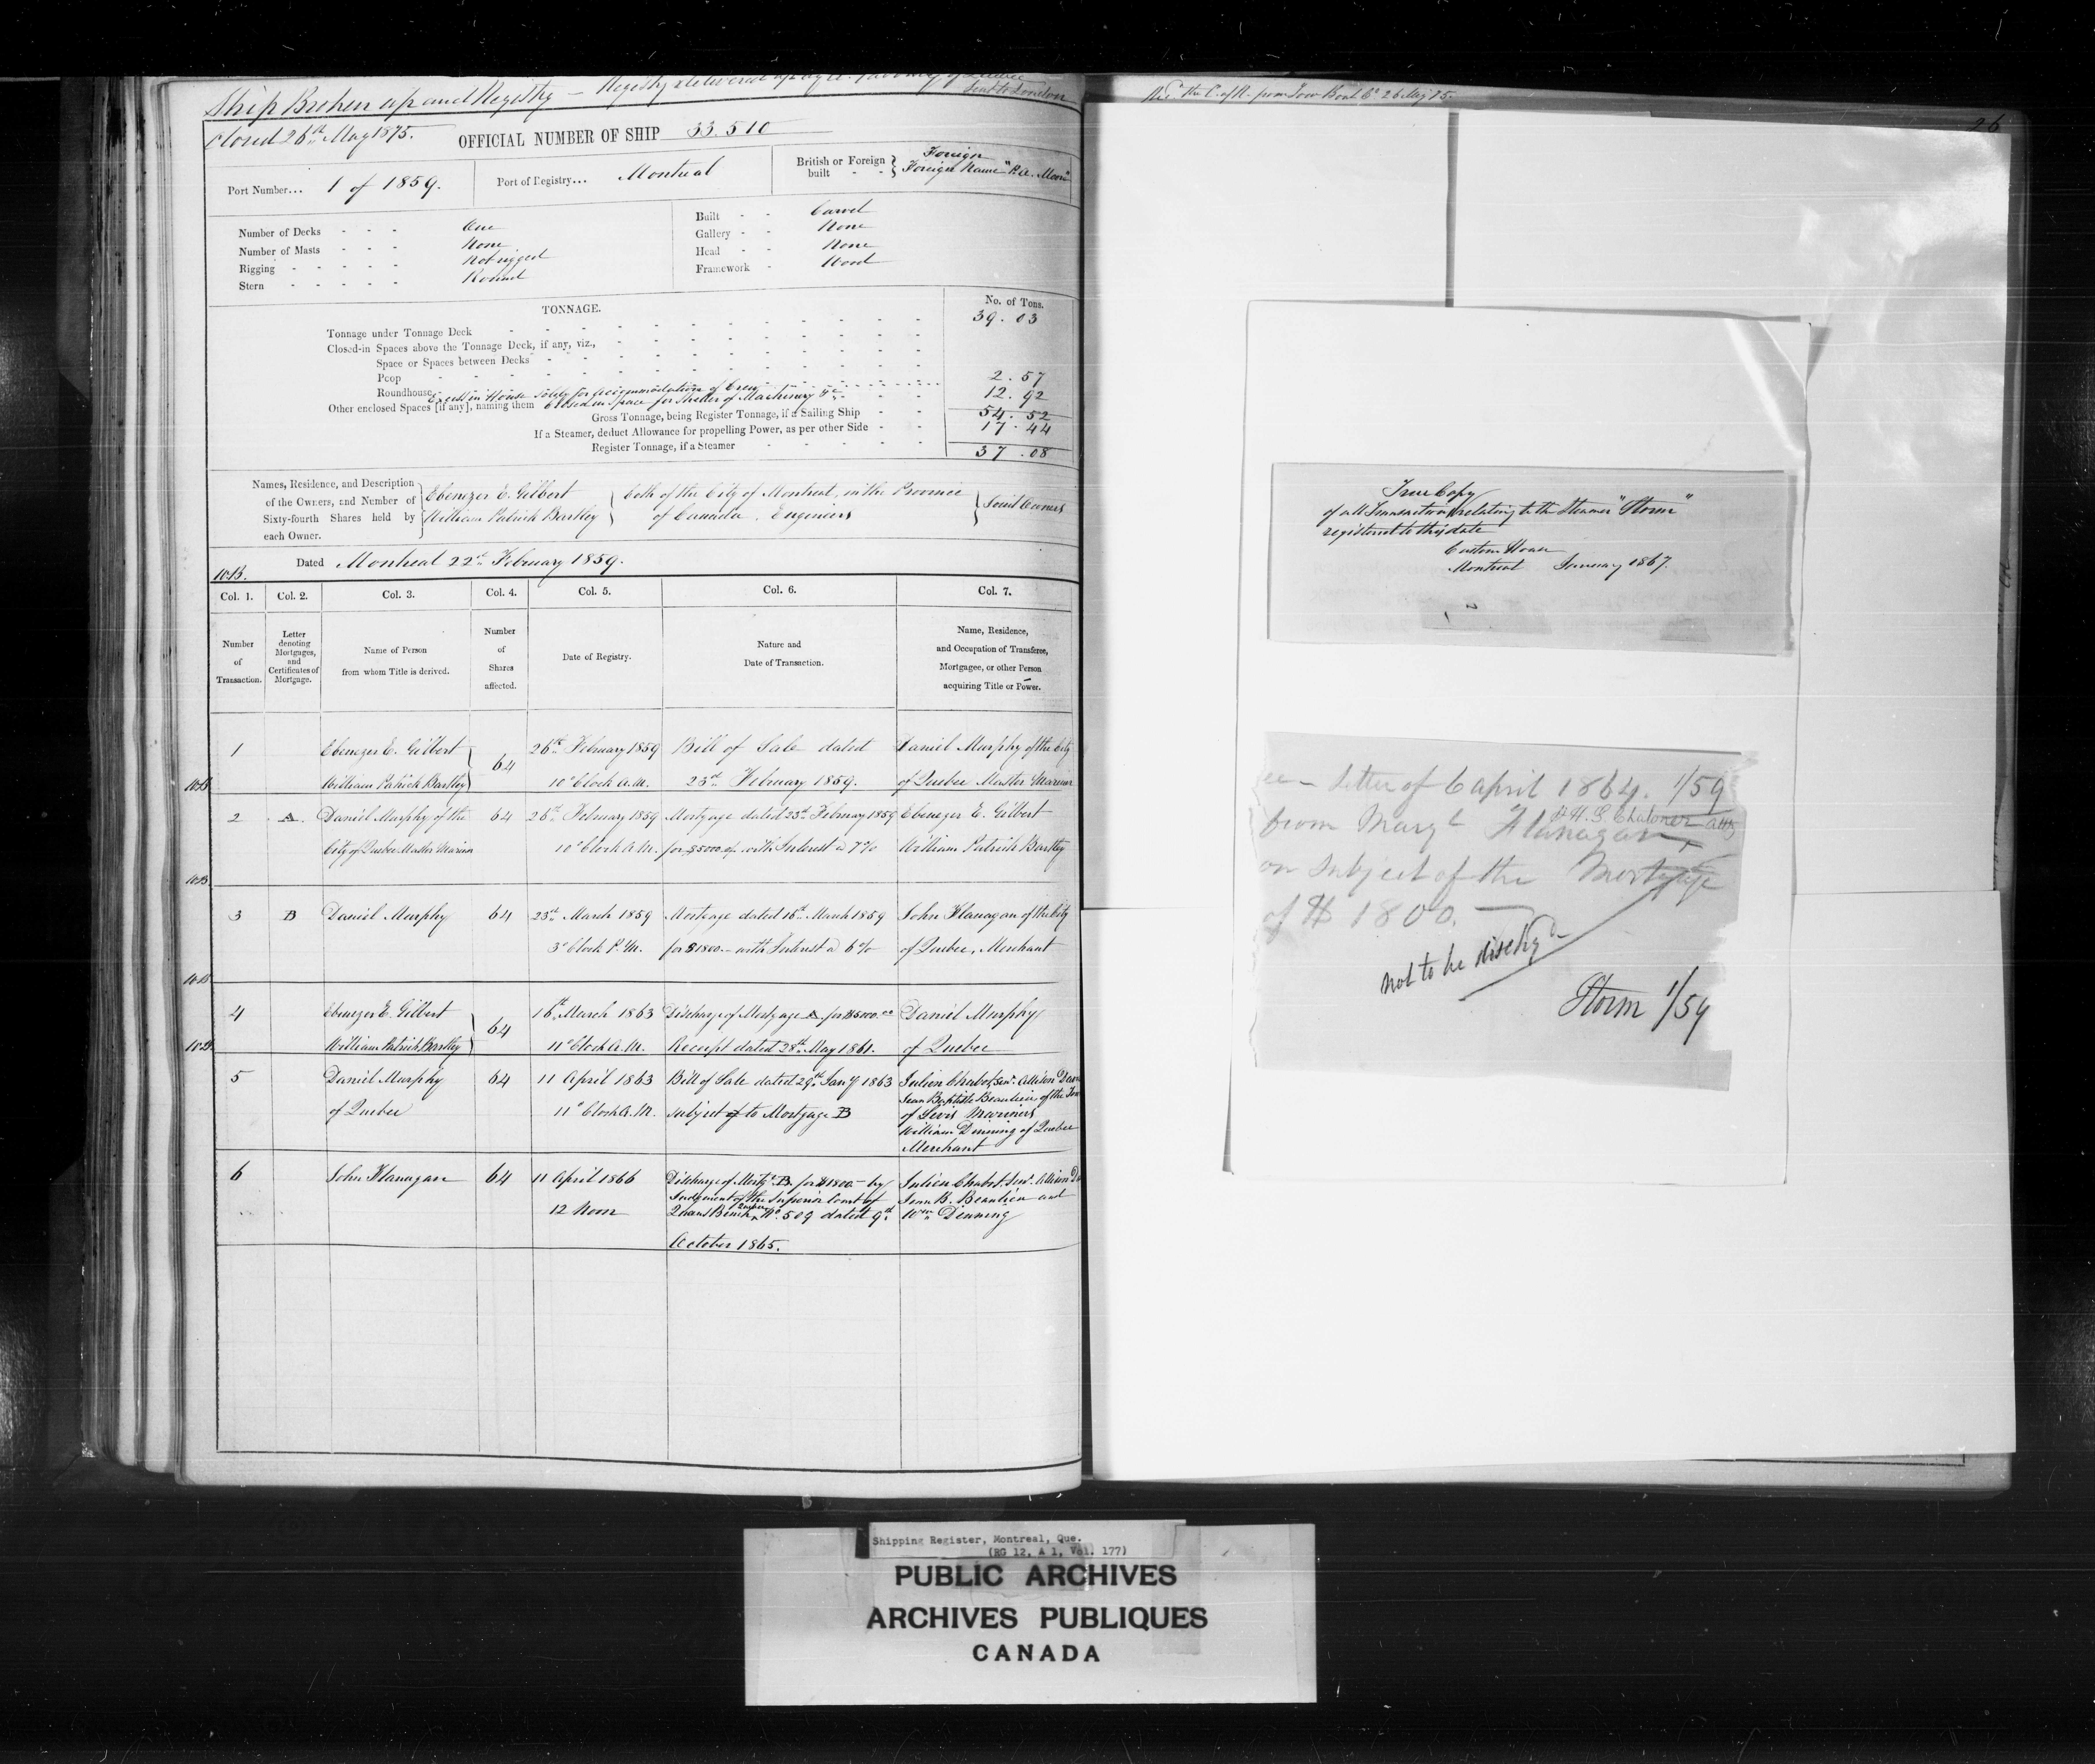 Ship Broken up and Registry — Registry delivered
Sent to London
Closed 26th May 1875.
OFFICIAL NUMBER OF SHIP 33.510
Port Number... 1 of 1859.
Port of Registry... Montreal
British or Foreign built - - } Foreign
Foreign Name "R.A. Moon"
Number of Decks - - - One
Number of Masts - - - None
Rigging - - - - - Not rigged
Stern - - - - - Round
Built - - Carvel
Gallery - - None
Head - - None
Framework - Wood
TONNAGE.
No. of Tons.
Tonnage under Tonnage Deck 39.03
Closed-in Spaces above the Tonnage Deck, if any, viz.,
Space or Spaces between Decks
Poop
Roundhouse Excess in House Solely for accommodation of Crew 2.57
Other enclosed Spaces [if any], naming them Closed in space for Shelter of Machinery &c 12.92
Gross Tonnage, being Register Tonnage, if a Sailing Ship 54.52
If a Steamer, deduct Allowance for propelling Power, as per other Side 17.44
Register Tonnage, if a Steamer 37.08
Names, Residence, and Description
of the Owners, and Number of
Sixty-fourth Shares held by
each Owner.
Ebenezer E. Gilbert
William Patrick Bartley
both of the City of Montreal, in the Province
of Canada. Engineers
Joint Owners
Dated Montreal 22nd February 1859.
Col. 1. Col. 2. Col. 3. Col. 4. Col. 5. Col. 6. Col. 7.
Number of Transaction.
Letter denoting Mortgages, and Certificates of Mortgage.
Name of Person from whom Title is derived.
Number of Shares affected.
Date of Registry.
Nature and Date of Transaction.
Name, Residence, and Occupation of Transferee, Mortgagee, or other Person acquiring Title or Power.
1 Ebenezer E. Gilbert 64 26th February 1859 Bill of Sale dated Daniel Murphy of the City
William Patrick Bartley 10 o'Clock A.M. 23rd February 1859. of Quebec Master Mariner
2 A. Daniel Murphy of the 64 26th February 1859 Mortgage dated 23rd February 1859 Ebenezer E. Gilbert
City of Quebec Master Mariner 10 o'Clock A.M. for $5000 with Interest @ 7% William Patrick Bartley
3 B Daniel Murphy 64 23rd March 1859 Mortgage dated 16th March 1859 John Flanagan of the City
3 o'Clock P.M. for $1800.– with Interest @ 6% of Quebec, Merchant
4 Ebenezer E. Gilbert 64 16th March 1863 Discharge of Mortgage A for $5000.00 Daniel Murphy
William Patrick Bartley 11 o'Clock A.M. Receipt dated 28th May 1861. of Quebec
5 Daniel Murphy 64 11 April 1863 Bill of Sale dated 29th Jany 1863 Julien Chabot, Senr. Allison
of Quebec 11 o'Clock A.M. subject to Mortgage B Jean Baptiste Beaulieu of the
of Levis Mariners
William Dinning of Quebec
Merchant
6 John Flanagan 64 11 April 1866 Discharge of Mortg. B for $1800– by Julien Chabot, Senr. Allison
12 Noon Judgement of the Superior Court of Jean B. Beaulieu and
Queens Bench Quebec No. 509 dated 9th Wm Dinning
October 1865.
Recd the C. of R. from Tow Boat Co 26 May 75.
26
True Copy
of all Transactions relating to the Steamer "Storm"
registered to this date
Custom House
Montreal January 1867.
Letter of 6 April 1864. 1/59
from Margt Flanagan
& H.S. Chaloner atty
on subject of the Mortgage
of $1800.—
not to be dischgd–
Storm 1/59
Shipping Register, Montreal, Que.
(RG 12, A 1, Vol. 177)
PUBLIC ARCHIVES
ARCHIVES PUBLIQUES
CANADA